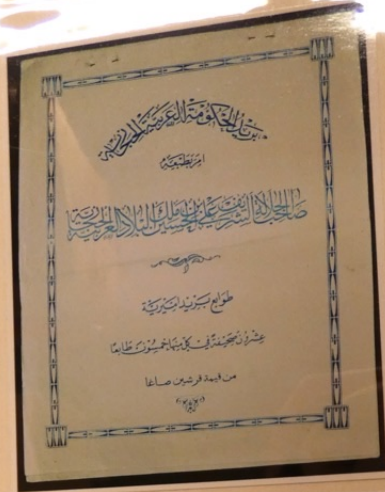 بريد الحكومة العربية الحجازية
امر بطبعه
صاحب الجلالة الشريف علي بن الحسين ملك البلاد العربية الحجازية
طوابع بريد اميرية
عشرون صحيفة في كل منها خمسون طابعا
من قيمة قرشين صاغا